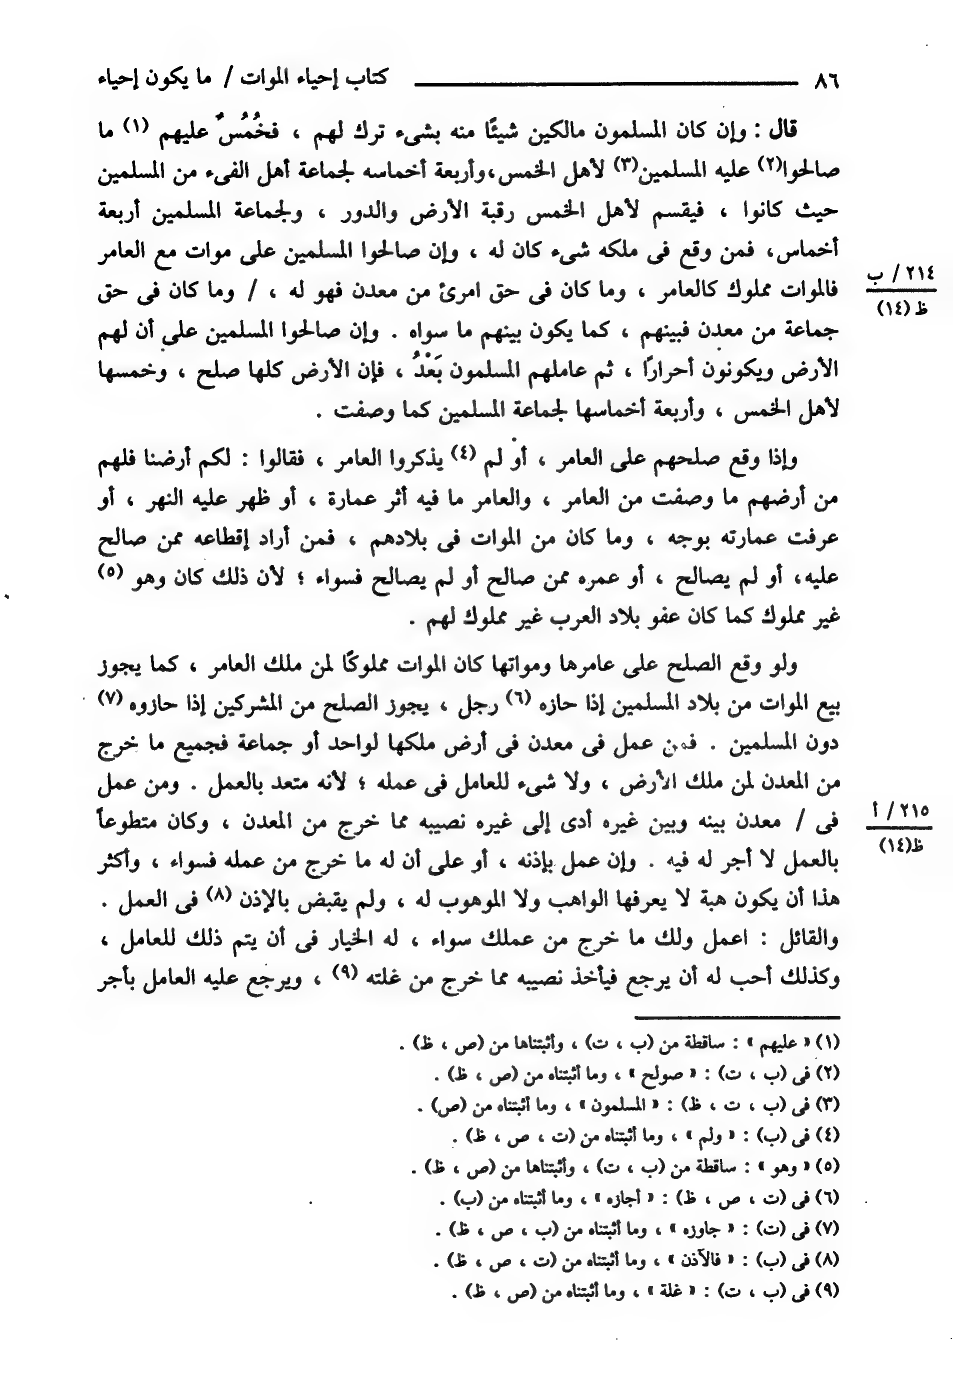 ٨٦ كتاب إحياء الموات / ما يكون إحياء
قال : وإن كان المسلمون مالكين شيئًا منه بشىء ترك لهم ، فخُمُسٌ عليهم (١) ما
صالحوا(٢) عليه المسلمين(٣) لأهل الخمس،وأربعة أخماسه لجماعة أهل الفىء من المسلمين
حيث كانوا ، فيقسم لأهل الخمس رقبة الأرض والدور ، ولجماعة المسلمين أربعة
أخماس، فمن وقع فى ملكه شىء كان له ، وإن صالحوا المسلمين على موات مع العامر
فالموات مملوك كالعامر ، وما كان فى حق امرئ من معدن فهو له ، / وما كان فى حق
٢١٤/ ب
ظ (١٤)
جماعة من معدن فبينهم ، كما يكون بينهم ما سواه . وإن صالحوا المسلمين على أن لهم
الأرض ويكونون أحرارًا ، ثم عاملهم المسلمون بَعْدُ ، فإن الأرض كلها صلح ، وخمسها
لأهل الخمس ، وأربعة أخماسها لجماعة المسلمين كما وصفت .
وإذا وقع صلحهم على العامر ، أو لم (٤) يذكروا العامر ، فقالوا : لكم أرضنا فلهم
من أرضهم ما وصفت من العامر ، والعامر ما فيه أثر عمارة ، أو ظهر عليه النهر ، أو
عرفت عمارته بوجه ، وما كان من الموات فى بلادهم ، فمن أراد إقطاعه ممن صالح
عليه، أو لم يصالح ، أو عمره ممن صالح أو لم يصالح فسواء ؛ لأن ذلك كان وهو (٥)
غير مملوك كما كان عفو بلاد العرب غير مملوك لهم .
ولو وقع الصلح على عامرها ومواتها كان الموات مملوكًا لمن ملك العامر ، كما يجوز
بيع الموات من بلاد المسلمين إذا حازه (٦) رجل ، يجوز الصلح من المشركين إذا حازوه (٧)
دون المسلمين . فمن عمل فى معدن فى أرض ملكها لواحد أو جماعة فجميع ما خرج
من المعدن لمن ملك الأرض ، ولا شىء للعامل فى عمله ؛ لأنه متعد بالعمل . ومن عمل
فى / معدن بينه وبين غيره أدى إلى غيره نصيبه مما خرج من المعدن ، وكان متطوعاً
٢١٥/ أ
ظ(١٤)
بالعمل لا أجر له فيه . وإن عمل بإذنه ، أو على أن له ما خرج من عمله فسواء ، وأكثر
هذا أن يكون هبة لا يعرفها الواهب ولا الموهوب له ، ولم يقبض بالإذن (٨) فى العمل .
والقائل : اعمل ولك ما خرج من عملك سواء ، له الخيار فى أن يتم ذلك للعامل ،
وكذلك أحب له أن يرجع فيأخذ نصيبه مما خرج من غلته (٩) ، ويرجع عليه العامل بأجر
(١) « عليهم » : ساقطة من (ب ، ت) ، وأثبتناها من (ص ، ظ) .
(٢) فى (ب ، ت) : « صولح » ، وما أثبتناه من (ص ، ظ) .
(٣) فى (ب ، ت ، ظ) : « المسلمون » ، وما أثبتناه من (ص) .
(٤) فى (ب) : « ولم » ، وما أثبتناه من (ت ، ص ، ظ) .
(٥) « وهو » : ساقطة من (ب ، ت) ، وأثبتناها من (ص ، ظ) .
(٦) فى (ت ، ص ، ظ) : « أجازه » ، وما أثبتناه من (ب) .
(٧) فى (ت) : « جاوزه » ، وما أثبتناه من (ب ، ص ، ظ) .
(٨) فى (ب) : « فالآذن » ، وما أثبتناه من (ت ، ص ، ظ) .
(٩) فى (ب ، ت) : « غلة » ، وما أثبتناه من (ص ، ظ) .